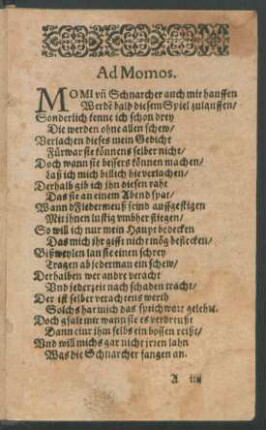 Ad Momos.
MOMI vñ Schnarcher auch mit hauffen
Werdẽ bald diesem Spiel zulauffen/
Sonderlich kenne ich schon drey
Die werden ohne allen schew/
Verlachen dieses mein Gedicht
Fürwar sie könnens selber nicht/
Doch wann sie bessers können machen/
laß ich mich billich hie verlachen/
Derhalb gib ich jhn diesen raht
Das sie an einem Abend spat/
Wann dFledermeuß seind auffgestigen
Mit ihnen lustig vmbher fliegen/
So will ich nur mein Haupt bedecken
Das mich jhr gifft nicht mög beflecken/
Bißweylen lan sie einen schrey
Tragen ab jederman ein schew/
Derhalben wer andre veracht
Vnd jederzeit nach schaden tracht/
Der ist selber verachtens werth
Solchs hat mich das sprichwort gelehrt.
Doch gfalt mir wann sie es verdreußt
Dann einr jhm selbs ein bossen reißt/
Vnd will michs gar nicht jrren lahn
Was die Schnarcher fangen an.
A iiij